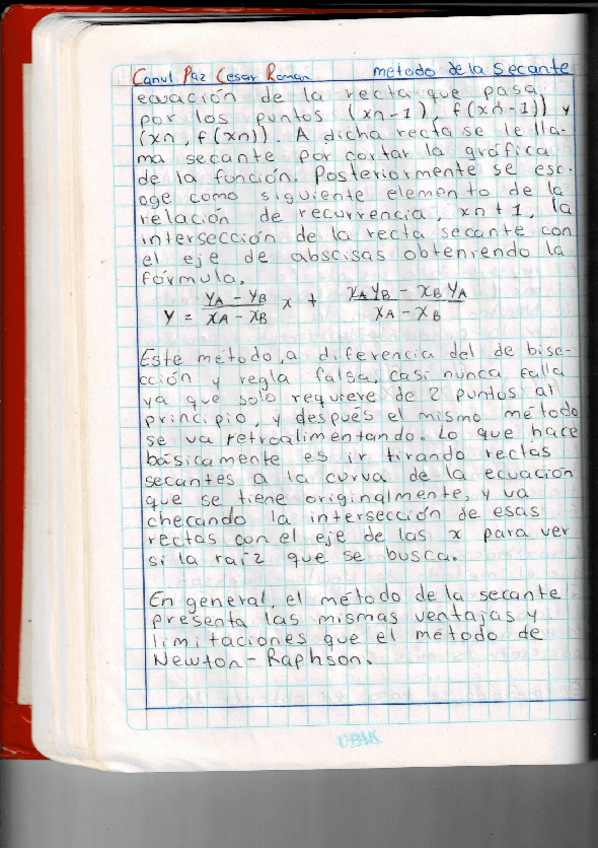 Canul Paz Cesar Roman método de la Secante
ecuación de la recta que pasa
por los puntos (xn-1), f(xn-1)) y
(xn, f(xn)). A dicha recta se le lla-
ma secante por cortar la gráfica
de la función. Posteriormente se esc-
oge como siguiente elemento de la
relación de recurrencia, xn+1, la
intersección de la recta secante con
el eje de abscisas obteniendo la
fórmula.
Y = (YA - YB)/(XA - XB) x + (XAYB - XBYA)/(XA - XB)
Este método, a diferencia del de bise-
cción y regla falsa, casi nunca falla
ya que solo requiere de 2 puntos al
principio, y después el mismo método
se va retroalimentando. Lo que hace
básicamente es ir tirando rectas
secantes a la curva de la ecuación
que se tiene originalmente, y va
checando la intersección de esas
rectas con el eje de las x para ver
si la raíz que se busca.
En general, el método de la secante
presenta las mismas ventajas y
limitaciones que el método de
Newton-Raphson.